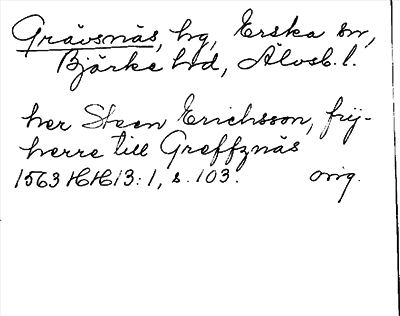 Grävsnäs, hg, Erska sn,
Bjärke hd, Älvsb. l.
her Steen Erichsson, frij-
herre till Greffznäs
1563 HH 13:1, s. 103. orig.